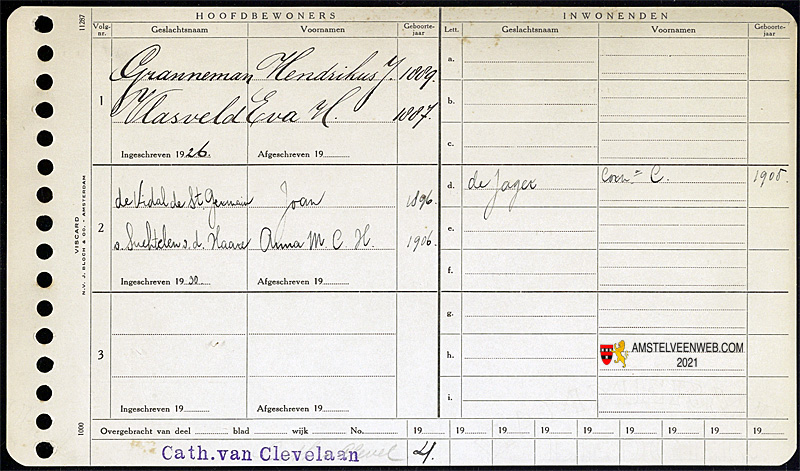 HOOFDBEWONERS INWONENDEN
Volg-nr. Geslachtsnaam Voornamen Geboorte-jaar Lett. Geslachtsnaam Voornamen Geboorte-jaar
11287
1
Granneman Hendrikus J. 1889.
Vlasveld Eva H. 1887.
Ingeschreven 1926. Afgeschreven 19
a.
b.
c.
2
de Vidal de St. Germain Joan 1896.
v. Suchtelen v. d. Haare Anna M. C. H. 1906.
Ingeschreven 1930. Afgeschreven 19
d. de Jager Corn C. 1905.
e.
f.
3
Ingeschreven 19 Afgeschreven 19
g.
h.
i.
AMSTELVEENWEB.COM
2021
VISCARD
N.V. J. BLOCH & CO. - AMSTERDAM
1000
Overgebracht van deel blad wijk No. 19 19 19 19 19 19 19 19 19
Cath. van Clevelaan 4.